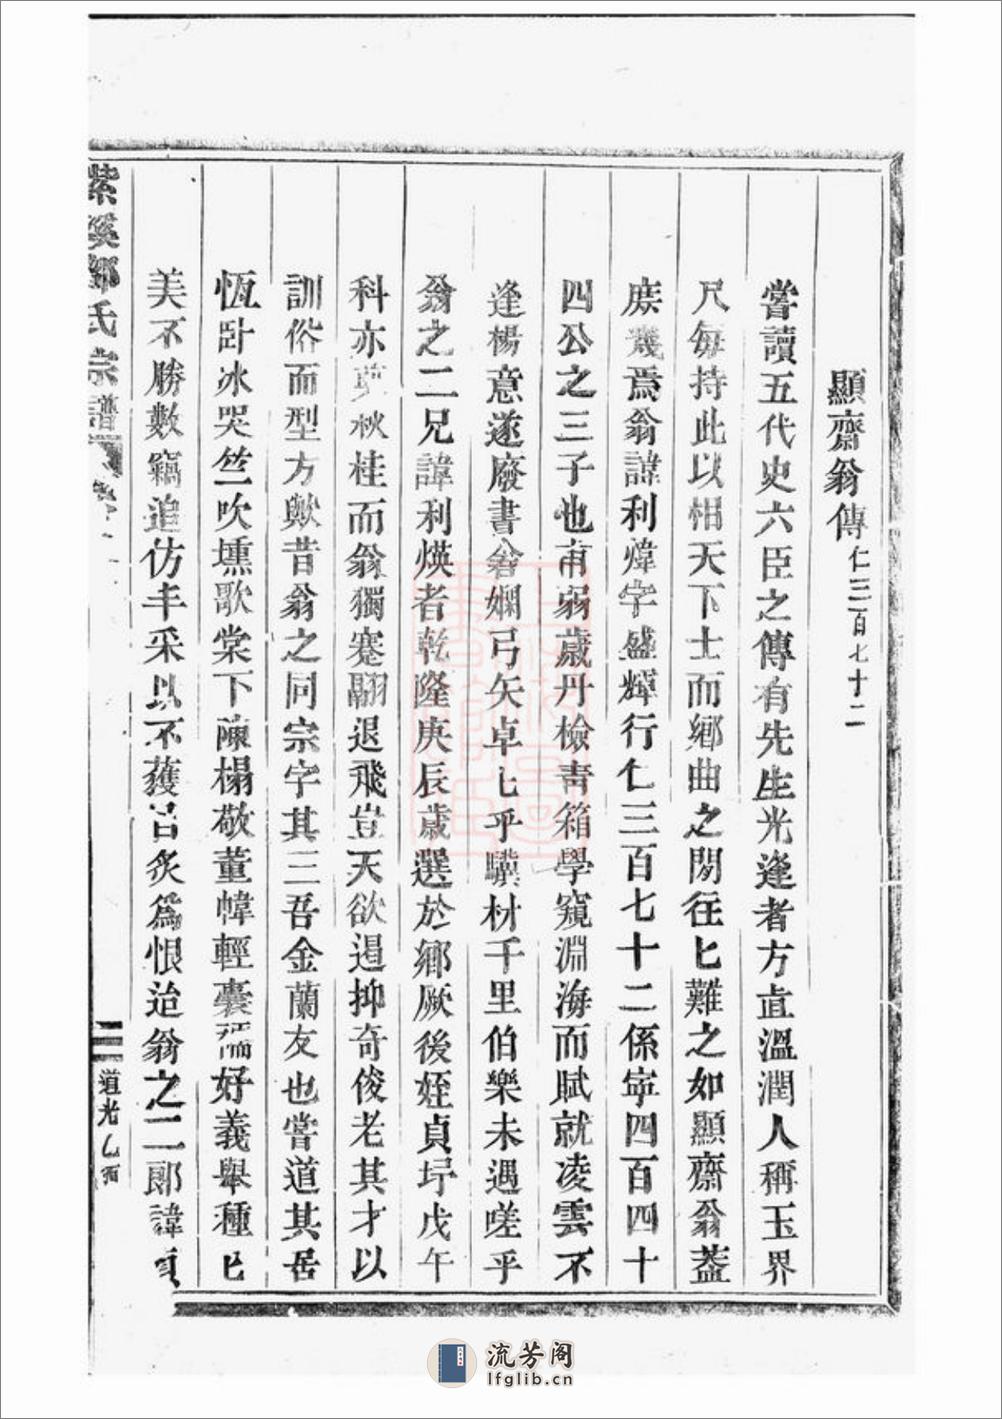 顯齋翁傳仁三百七十二
嘗讀五代史六臣之傳有先生光逢者方直溫潤人稱玉界
尺每持此以相天下士而鄉曲之閒往匕難之如顯齋翁葢
庻幾焉翁諱利煒字盛輝行仁三百七十二係寧四百四十
四公之三子也甫弱歲丹檢青箱學窺淵海而賦就凌雲不
逢楊意遂廢書 嫻弓矢卓七乎驥材千里伯樂未遇嗟乎
翁之二兄諱利煐者乾隆庚辰歲選於鄉厥後姪貞 戊午
科亦 秋桂而翁獨蹇翮退飛豈天欲遏抑奇俊老其才以
訓俗而型方歟昔翁之同宗字其三吾金蘭友也嘗道其居
恆卧冰哭竺吹壎歌棠下陳榻敬董幃輕囊 好義舉種匕
美不勝數竊追仿丰采以不獲 炙爲恨迨翁之二郎諱
紫溪鄒氏宗譜
道光乙酉
流芳阁
lfglib.cn